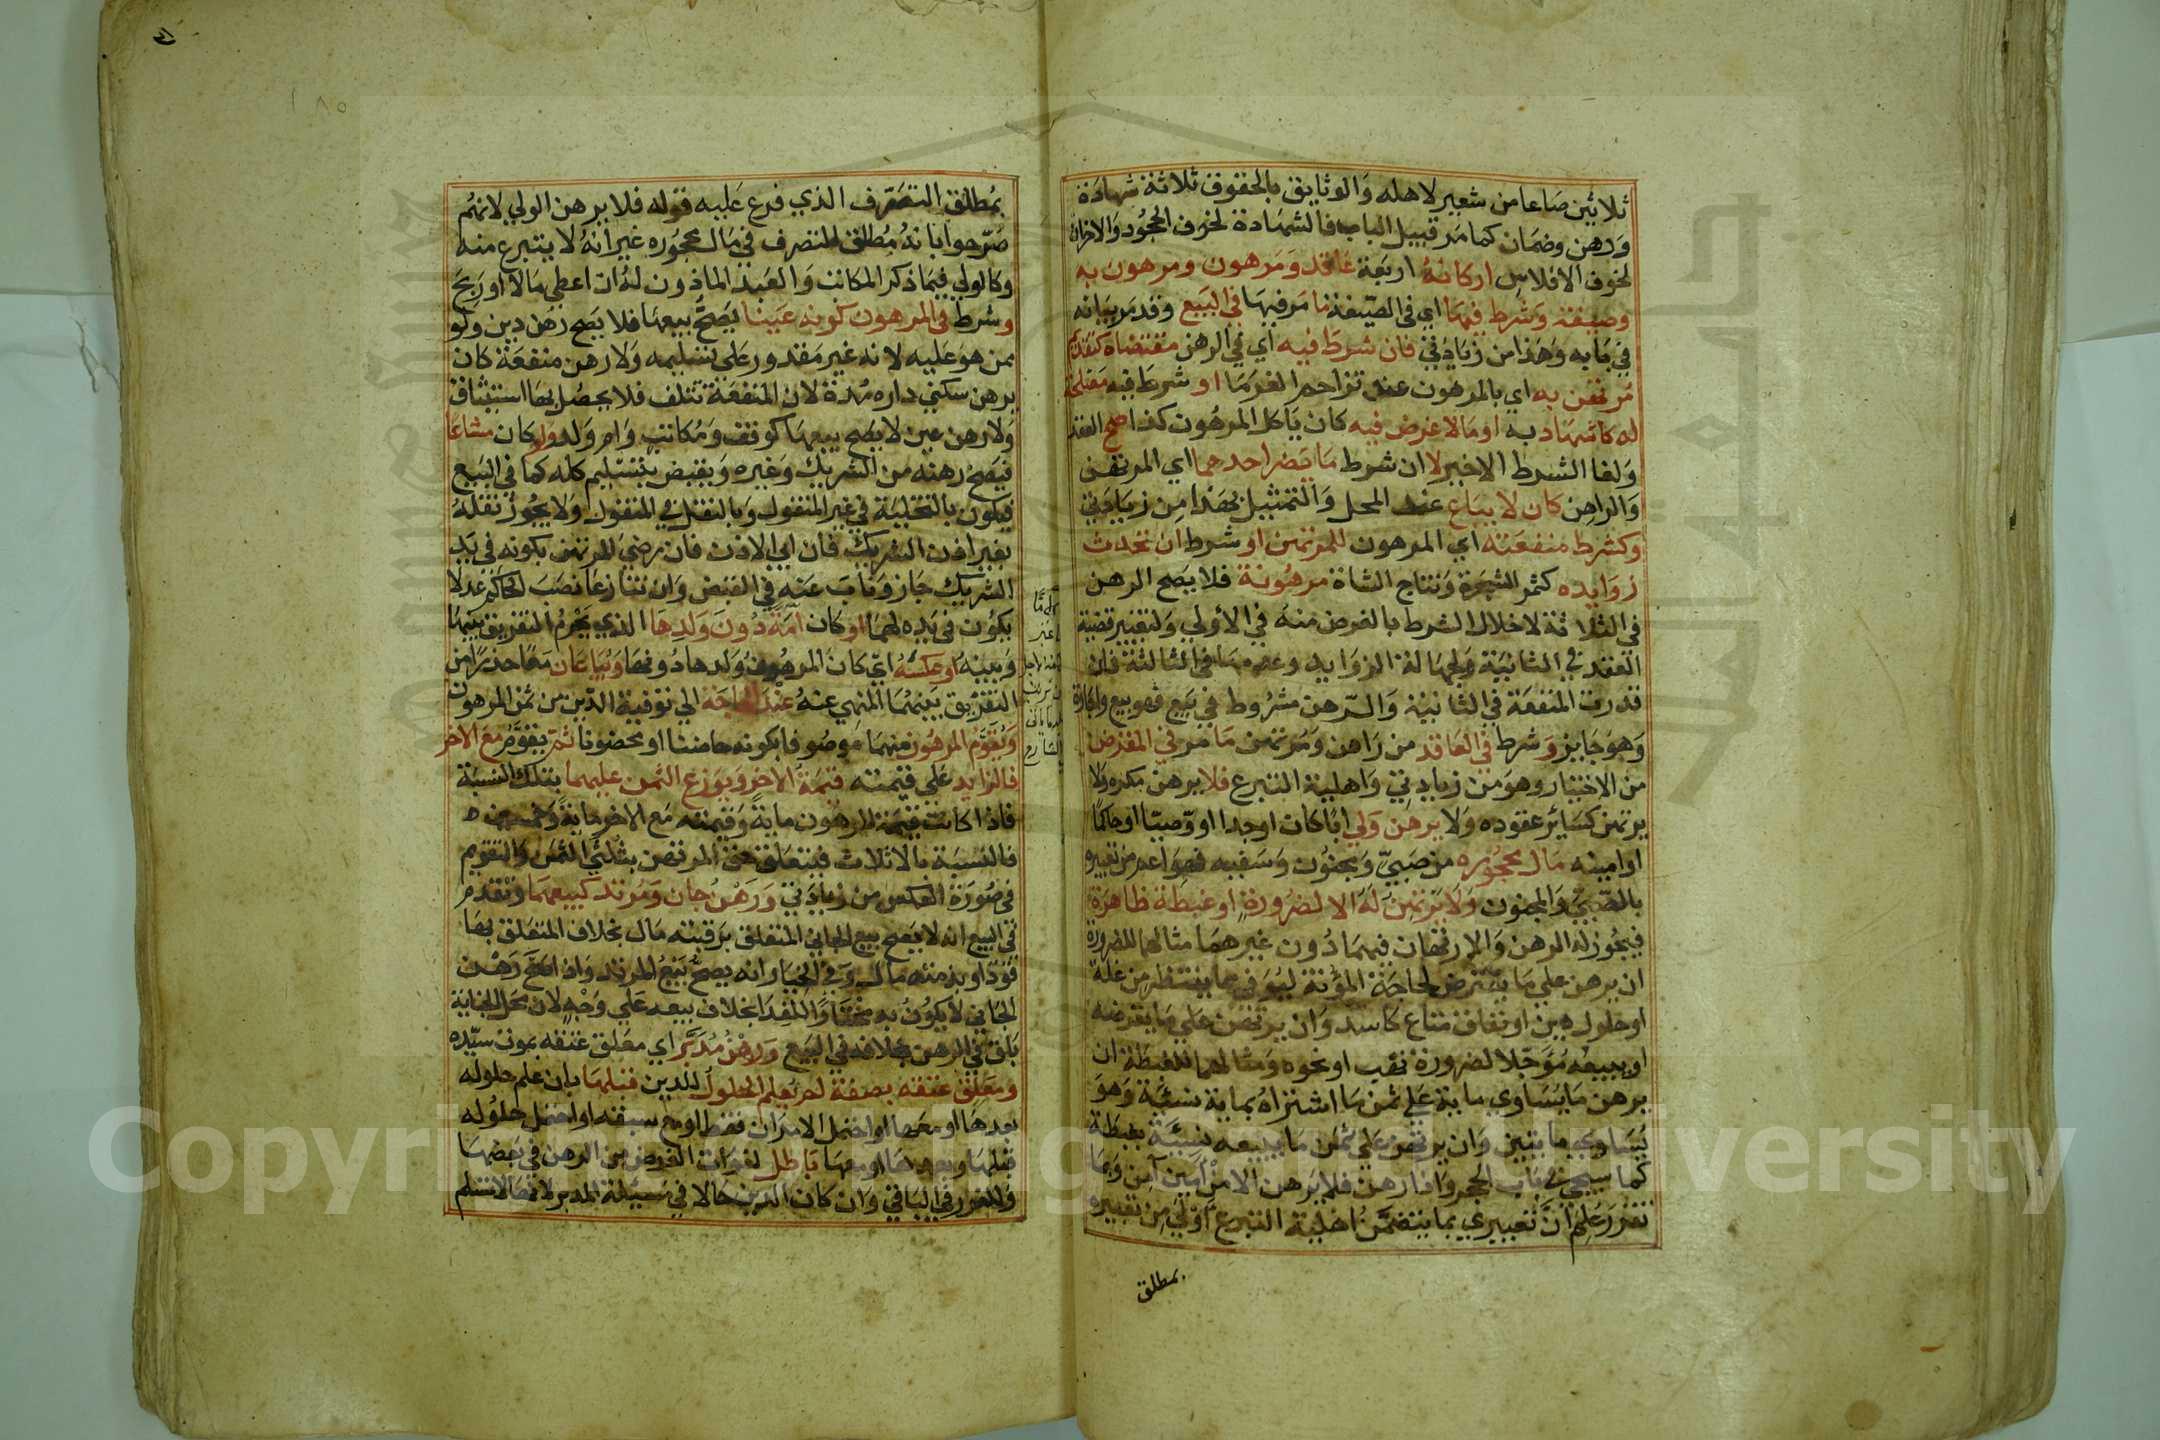 ثلاثين صاعا من شعير لاهله والوثايق بالحقوق ثلاثة شهادة
ورهن وضمان كما مر قبيل الباب فالشهادة لخوف الجحود والاخران
لخوف الافلاس اركانه اربعة عاقد ومرهون ومرهون به
وصيغة وشرط فيها اي في الصيغة ما مر فيها في البيع وقد مر بيانه
في بابه وهذا من زيادتي فان شرط فيه اي في الرهن مقتضاه كتقدم
مرتهن به اي بالمرهون عند تزاحم الغرما او شرط فيه مصلحة
له كاشهاد به او مالا غرض فيه كان ياكل المرهون كذا صح العقد
ولغا الشرط الاخير لا ان شرط ما يضر احدهما اي المرتهن
والراهن كان لا يباع عند المحل والتمثيل بهذا من زيادتي
وكشرط منفعته اي المرهون للمرتهن او شرط ان تحدث
زوايده كثمر الشجرة ونتاج الشاة مرهونة فلا يصح الرهن
في الثلاثة لاخلال الشرط بالغرض منه في الأولي ولتغيير قضية
العقد في الثانية ولجهالة الزوايد وعدمها في الثالثة فان
قدرت المنفعة في الثانية والرهن مشروط في بيع فهو بيع واجارة
وهو جايز وشرط في العاقد من راهن ومرتهن ما مر في المقرض
من الاختيار وهو من زيادتي واهلية التبرع فلا يرهن مكره ولا
يرتهن كسائر عقوده ولا يرهن ولي ابا كان او جدا او وصيا او حاكما
او امينه مال محجوره من صبي ومجنون وسفيه فهو اعم من تعبيره
بالصبي والمجنون ولا يرتهن له الا لضرورة او غبطة ظاهرة
فيجوز له الرهن والارتهان فيهما دون غيرهما مثالهما للضرورة
ان يرهن علي ما يقترض لحاجة المؤنة ليوفي مما ينتظر من غلة
او حلول دين او نفاق متاع كاسد وان يرتهن علي ما يقرضه
او يبيعه مؤجلا لضرورة نهب او نحوه ومثالهما للغبطة ان
يرهن ما يساوي ماية علي ثمن ما اشتراه بماية نسئية وهو
يساوي مايتين وان يرتهن علي ثمن ما يبيعه نسيئة بغبطة
كما سيجي في باب الحجر واذا رهن فلا يرهن الا من امين آمن وما
تقرر علم أن تعبيري بما يتضمن اهلية التبرع اولي من تعبيره
بمطلق
بمطلق التصرف الذي فرع عليه قوله فلا يرهن الولي لانهم
صرحوا بانه مطلق التصرف في مال محجوره غير أنه لا يتبرع منه
وكالولي فيما ذكر المكاتب والعبد الماذون له ان اعطي مالا او ربح
وشرط في المرهون كونه عينا يصح بيعها فلا يصح رهن دين ولو
ممن هو عليه لانه غير مقدور على تسليمه ولا رهن منفعة كان
يرهن سكني داره مدة لان المنفعة تتلف فلا يحصل بها استيثاق
ولا رهن عين لا يصح بيعها كوقف ومكاتب وام ولد ولو كان مشاعا
فيصح رهنه من الشريك وغيره ويقبض بتسليم كله كما في البيع
فيكون بالتخلية في غير المنقول وبالنقل في المنقول ولا يجوز نقله
بغير اذن الشريك فان ابي الاذن فان رضي المرتهن بكونه في يد
الشريك جاز وناب عنه في القبض وان تنازعا نصب الحاكم عدلا
يكون في يده لهما او كان امة دون ولدها الذي يحرم التفريق بينها
وبينه او عكسه اي كان المرهون ولدها دونها ويباعان معا حذرا من
التفريق بينهما المنهي عنه عند الحاجة الي توفية الدين من ثمن المرهون
ويقوم المرهون منهما موصوفا بكونه حاضنا او محضونا ثم يقوم مع الاخر
فالزايد علي قيمته قيمة الاخر ويوزع الثمن عليهما بتلك النسبة
فاذا كانت قيمة المرهون ماية وقيمته مع الاخر ماية وخمسين
فالنسبة بالاثلاث فيتعلق حق المرتهن بثلثي الثمن والتقويم
في صورة العكس من زيادتي ورهن جان ومرتد كبيعهما وتقدم
في البيع انه لا يصح بيع الجاني المتعلق برقبته مال بخلاف المتعلق بها
قود او بذمته مال وفي الخيار انه يصح بيع المرتد واذا صح رهن
الجاني لا يكون به مختارا للفدا بخلاف بيعه علي وجه لان محل الجناية
باق في الرهن بخلافه في البيع ورهن مدبر اي معلق عتقه بموت سيده
ومعلق عتقه بصفة لم يعلم الحلول للدين قبلها بان علم حلوله
بعدها او معها او احتمل الامران فقط او مع سبقه او احتمل حلوله
قبلها وبعدها او معها باطل لفوات الغرض من الرهن في بعضها
وللغرر في الباقي وان كان الدين حالا في مسيلة المدبر لانه لا تسلم